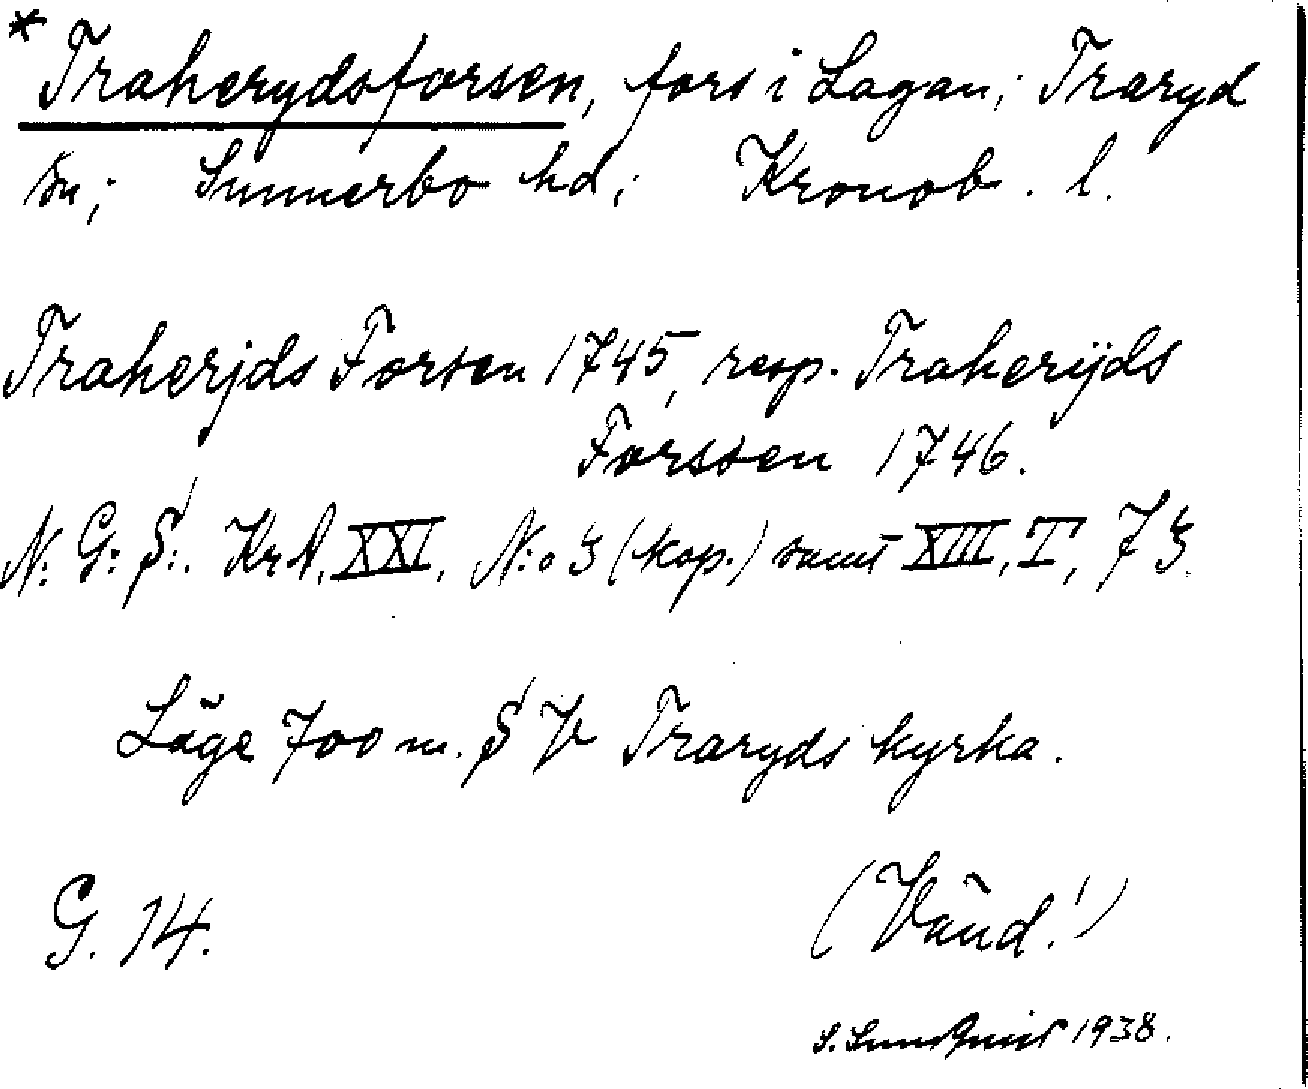 * Traherydsforsen, fors i Lagan; Traryd
sn; Sunnerbo hd; Kronob. l.
Traherjds Forsen 1745, resp. Traherijds
Forssen 1746.
N: G: S:. KrA, XXI, N:o 3 (kop.) samt XIII, I, 73.
Läge 700 m. S V Traryds kyrka.
G. 14.
(Vänd!)
S. Sundquist 1938.